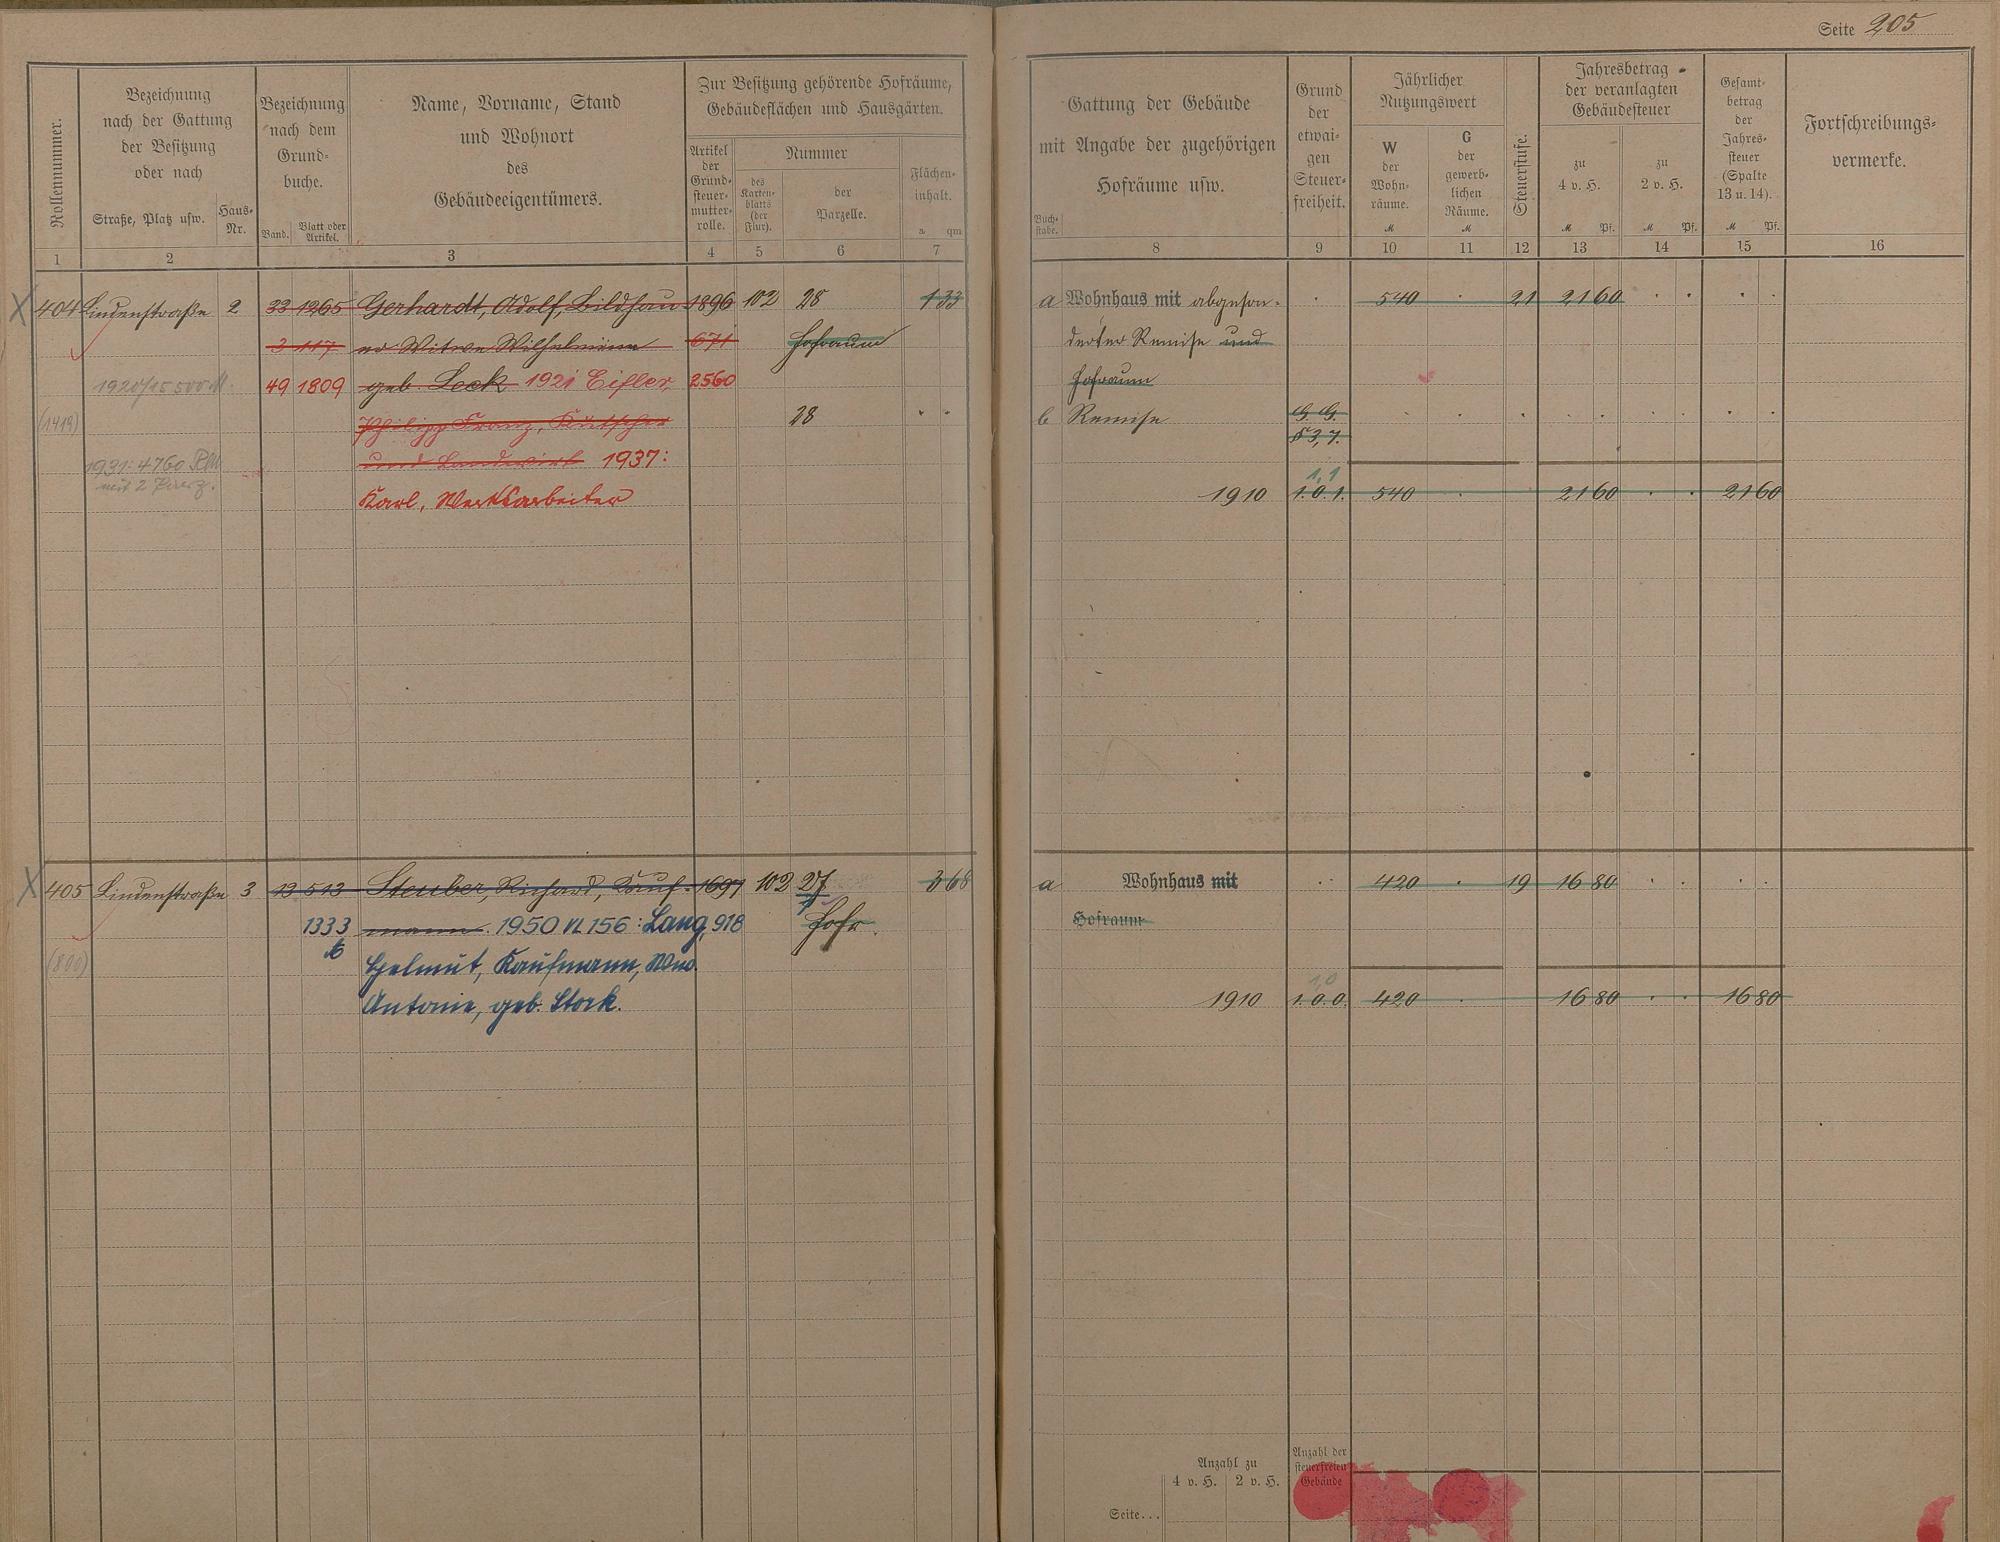 Seite 205
Rollennummer.
Bezeichnung
nach der Gattung
der Besitzung
oder nach
Straße, Platz usw.
Haus-
Nr.
Bezeichnung
nach dem
Grund-
buche.
Band.
Blatt oder
Artikel.
Name, Vorname, Stand
und Wohnort
des
Gebäudeeigentümers.
Zur Besitzung gehörende Hofräume,
Gebäudeflächen und Hausgärten.
Artikel
der
Grund-
steuer-
mutter-
rolle.
Nummer
des
Karten-
blatts
(der
Flur).
der
Parzelle.
Flächen-
inhalt.
a qm
Gattung der Gebäude
mit Angabe der zugehörigen
Hofräume usw.
Buch-
stabe.
Grund
der
etwai-
gen
Steuer-
freiheit.
Jährlicher
Nutzungswert
W
der
Wohn-
räume.
M
G
der
gewerb-
lichen
Räume.
M
Steuerstufe.
Jahresbetrag
der veranlagten
Gebäudesteuer
zu
4 v. H.
M Pf.
zu
2 v. H.
M Pf.
Gesamt-
betrag
der
Jahres-
steuer
(Spalte
13 u. 14).
M Pf.
Fortschreibungs-
vermerke.
1 2 3 4 5 6 7 8 9 10 11 12 13 14 15 16
404 Lindenstraße 2 33 1265 Gerhardt, Adolf, Bildhau- 1896 102 28 1 33 a Wohnhaus mit abgeson- 540 21 21 60
3 117 er Witwe Wilhelmine 671 Hofraum derter Remise und
1920/15 500 M. 49 1809 geb. Lock 1921 Eifler 2560 Hofraum
(1419) Philipp Franz, Kutscher 28 b Remise G.G.
§ 3,7.
1931: 4760 RM und Landwirt 1937:
mit 2 Parz.
1,1
Karl, Werksarbeiter 1910 1.0.1. 540 21 60 21 60
405 Lindenstraße 3 13 513 Steuber, Richard, Kauf- 1697 102 27 3 68 a Wohnhaus mit 420 19 16 80
1333 mann. 1950 VL 156: Lang, 918 Hofr. Hofraum
(800) Helmut, Kaufmann, Wwe.
1,0
Antonie, geb. Stork. 1910 1.0.0. 420 16 80 16 80
Anzahl zu
4 v. H. 2 v. H.
Anzahl der
steuerfreien
Gebäude
Seite...